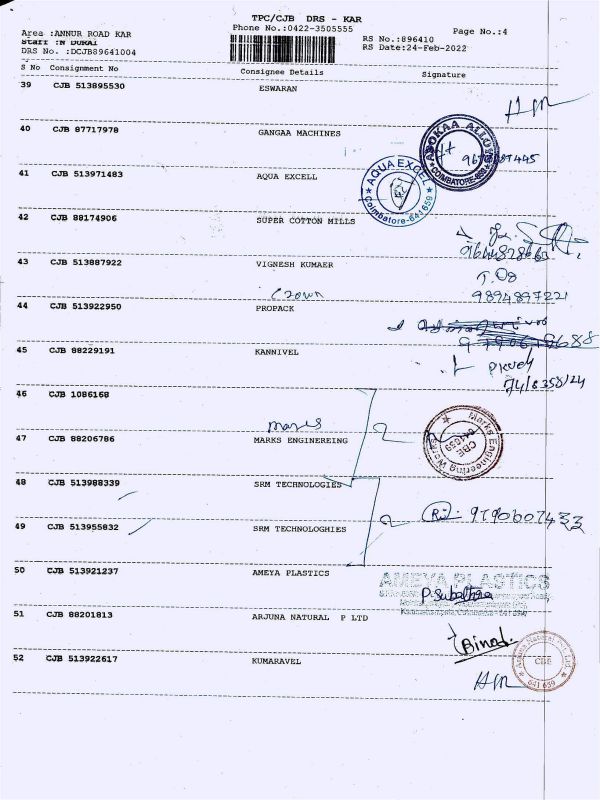 TPC/CJB DRS - KAR
Area :ANNUR ROAD KAR
Phone No.:0422-3505555
Page No.:4
Staff :N DURAI
RS No.:896410
DRS No. :DCJB89641004
RS Date:24-Feb-2022
S No Consignment No Consignee Details Signature
39 CJB 513895530 ESWARAN
40 CJB 87717978 GANGAA MACHINES
41 CJB 513971483 AQUA EXCELL
AQUA EXCEL
Coimbatore-641 659
COIMBATORE-659
42 CJB 88174906 SUPER COTTON MILLS
43 CJB 513887922 VIGNESH KUMAER
9894897221
Crown
44 CJB 513922950 PROPACK
45 CJB 88229191 KANNIVEL
46 CJB 1086168
Marks Engineering Works
CBE
641659
47 CJB 88206786 MARKS ENGINEREING
48 CJB 513988339 SRM TECHNOLOGIES
9790607433
49 CJB 513955832 SRM TECHNOLOGHIES
50 CJB 513921237 AMEYA PLASTICS
AMEYA PLASTICS
51 CJB 88201813 ARJUNA NATURAL P LTD
Binod.
52 CJB 513922617 KUMARAVEL
CBE
641 659